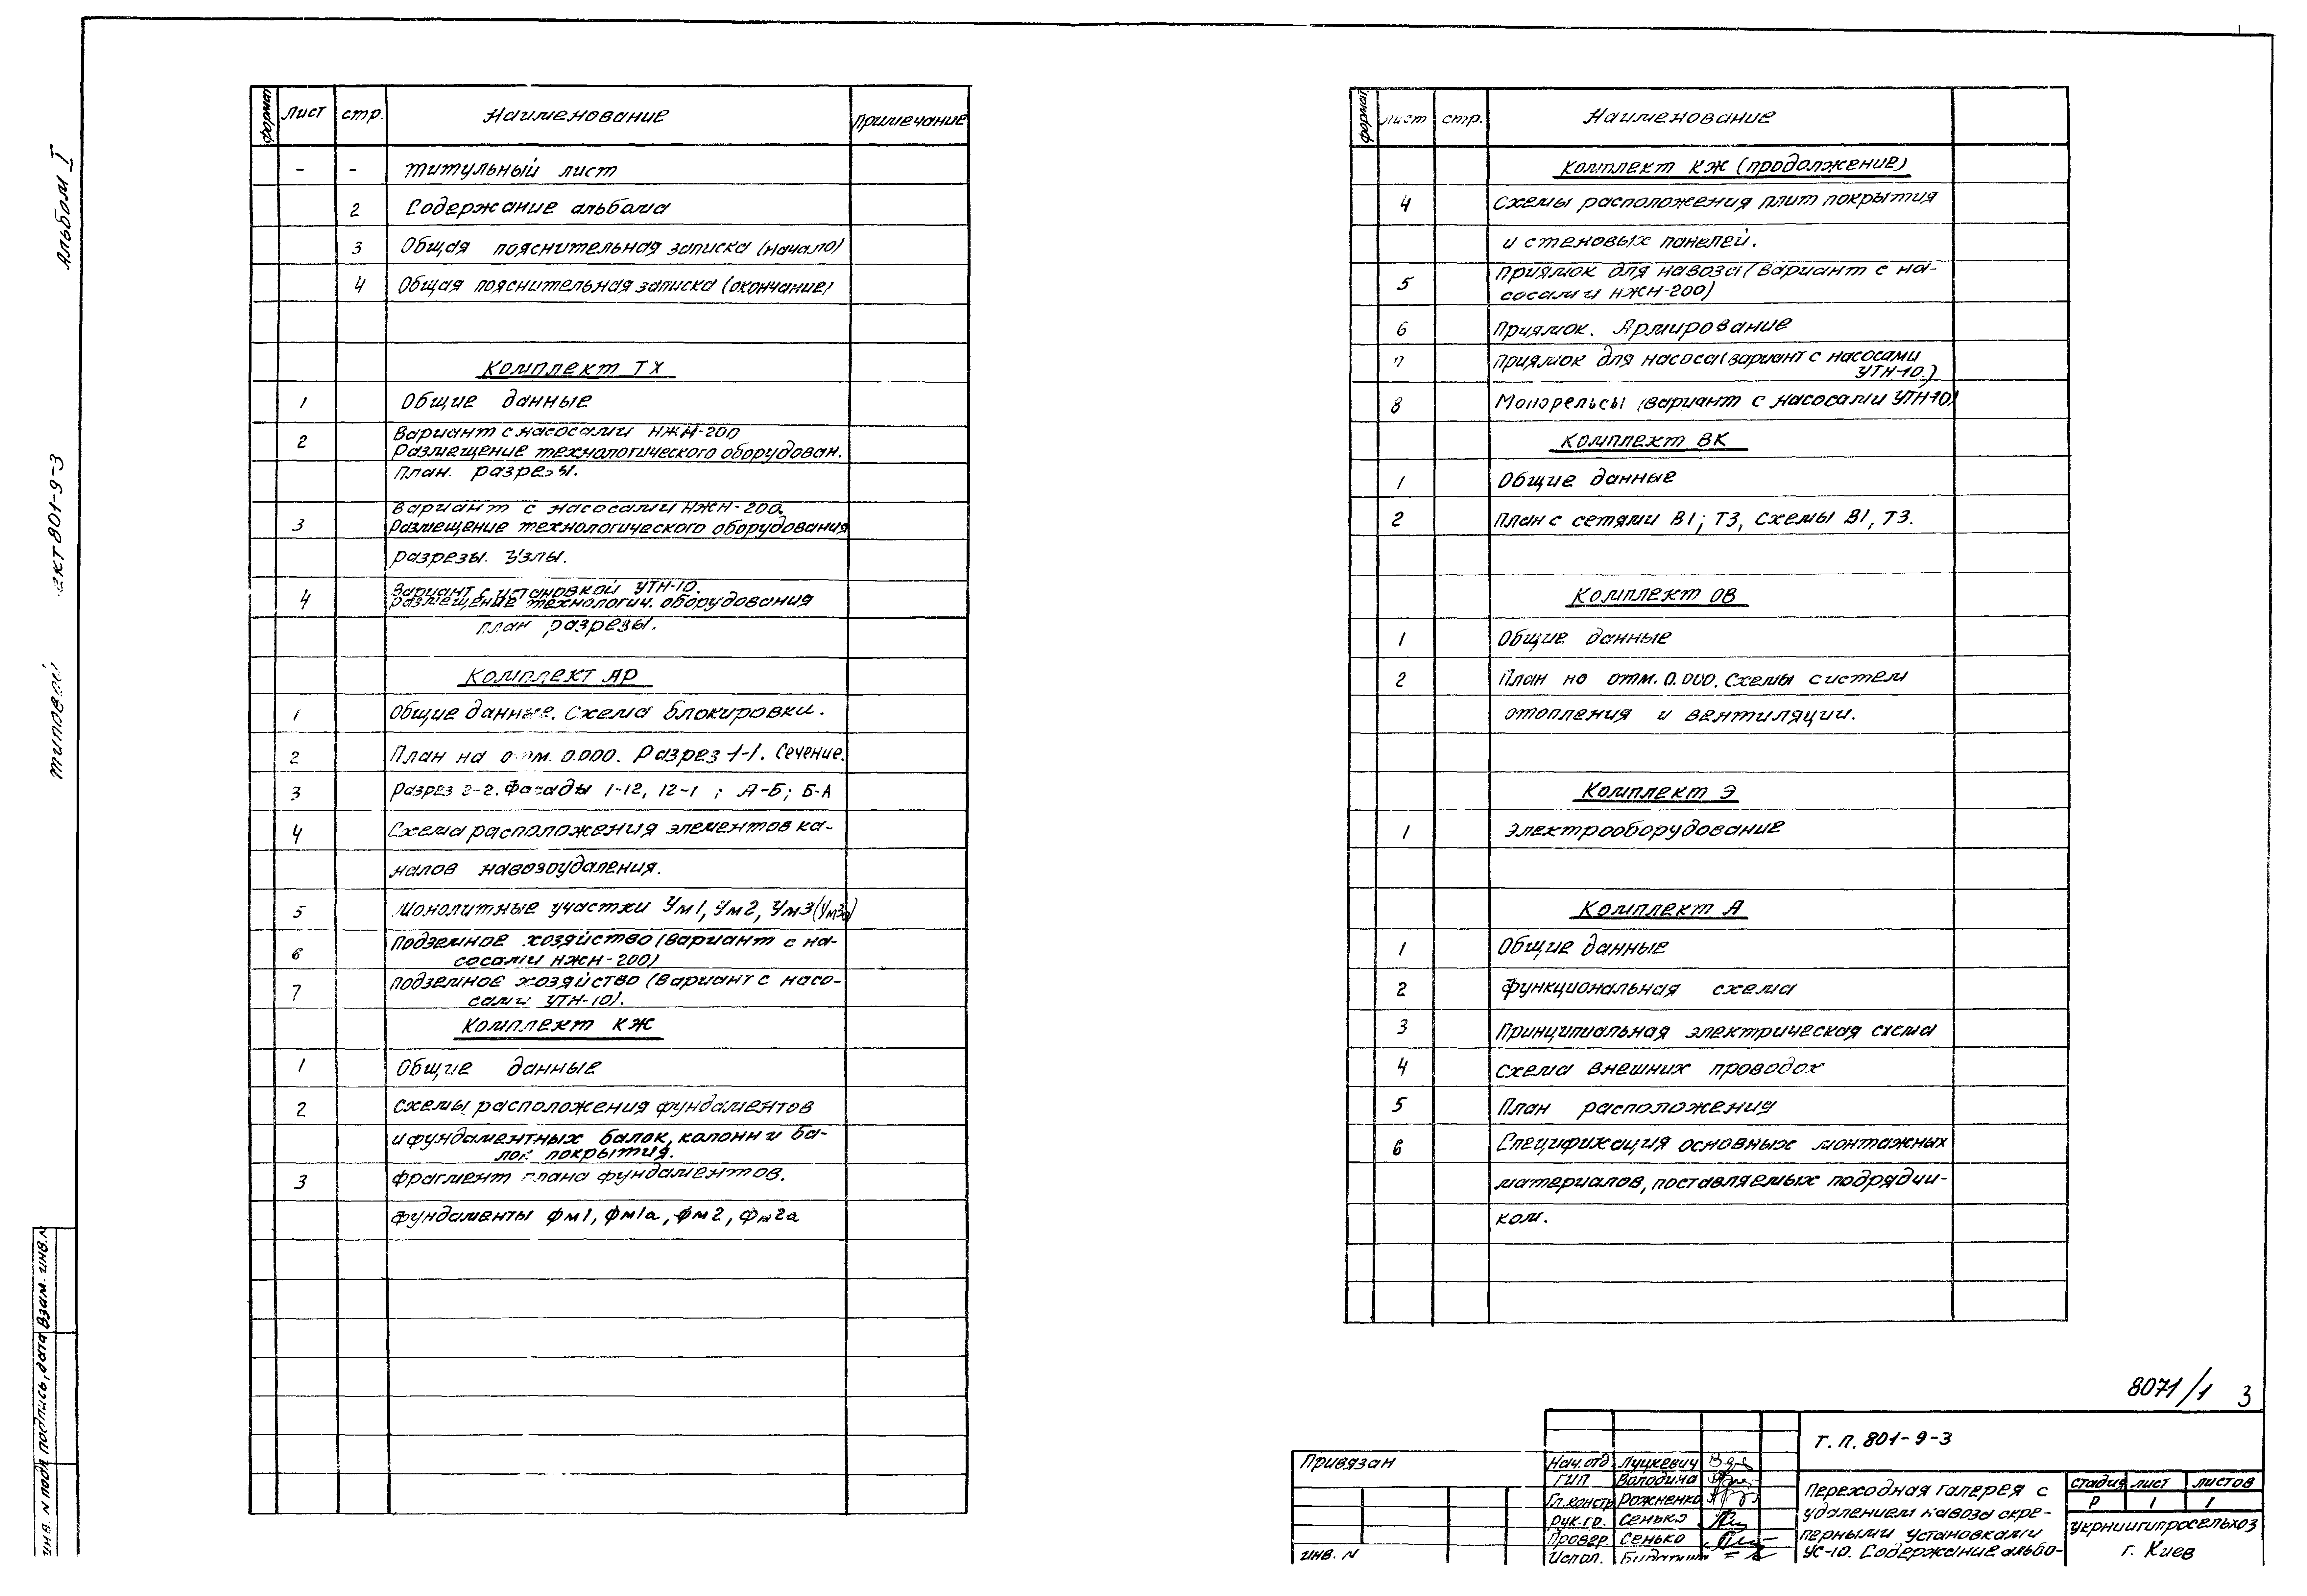 Альбом I
ект 801-9-3
типовой
Взам. инв. N
подпись, дата
инв. N подл
формат Лист стр. Наименование примечание
- - титульный лист
2 Содержание альбома
3 Общая пояснительная записка (начало)
4 Общая пояснительная записка (окончание)
Комплект ТХ
1 Общие данные
2 Вариант с насосами НЖН-200
Размещение технологического оборудован.
План. разрезы.
3 вариант с насосами НЖН-200.
Размещение технологического оборудования
разрезы. Узлы.
4 Вариант с установкой УТН-10.
размещение технологич. оборудования
план разрезы.
Комплект АР
1 Общие данные. Схема блокировки.
2 План на отм. 0.000. Разрез 1-1. Сечение.
3 Разрез 2-2. Фасады 1-12, 12-1 ; А-Б; Б-А
4 Схема расположения элементов ка-
налов навозоудаления.
5 Монолитные участки Ум1, Ум2, Ум3 (Ум3а)
6 Подземное хозяйство (вариант с на-
сосами НЖН-200)
7 подземное хозяйство (вариант с насо-
сами УТН-10).
Комплект КЖ
1 Общие данные
2 схемы расположения фундаментов
и фундаментных балок, колонн и ба-
лок покрытия.
3 Фрагмент плана фундаментов.
Фундаменты Фм1, Фм1а, Фм2, Фм2а
формат лист стр. Наименование
Комплект КЖ (продолжение)
4 Схемы расположения плит покрытия
и стеновых панелей.
5 приямок для навоза (вариант с на-
сосами НЖН-200)
6 Приямок. Армирование
7 приямок для насоса (вариант с насосами
УТН-10.)
8 Монорельсы (вариант с насосами УТН-10)
комплект ВК
1 Общие данные
2 План с сетями В1; Т3, схемы В1, Т3.
Комплект ОВ
1 Общие данные
2 План на отм. 0.000. Схемы систем
отопления и вентиляции.
Комплект Э
1 электрооборудование
Комплект А
1 Общие данные
2 функциональная схема
3 Принципиальная электрическая схема
4 схема внешних проводок
5 План расположения
6 Спецификация основных монтажных
материалов, поставляемых подрядчи-
ком.
8071/1 3
Привязан
инв. N
Нач. отд. Луцкевич
ГИП Володина
Гл. констр. Рожненко
рук. гр. Сенько
Провер. Сенько
Испол.
Т. П. 801-9-3
Переходная галерея с
удалением навоза скре-
перными установками
УС-10. Содержание альбо-
стадия лист листов
Р 1 1
Укрниигипросельхоз
г. Киев